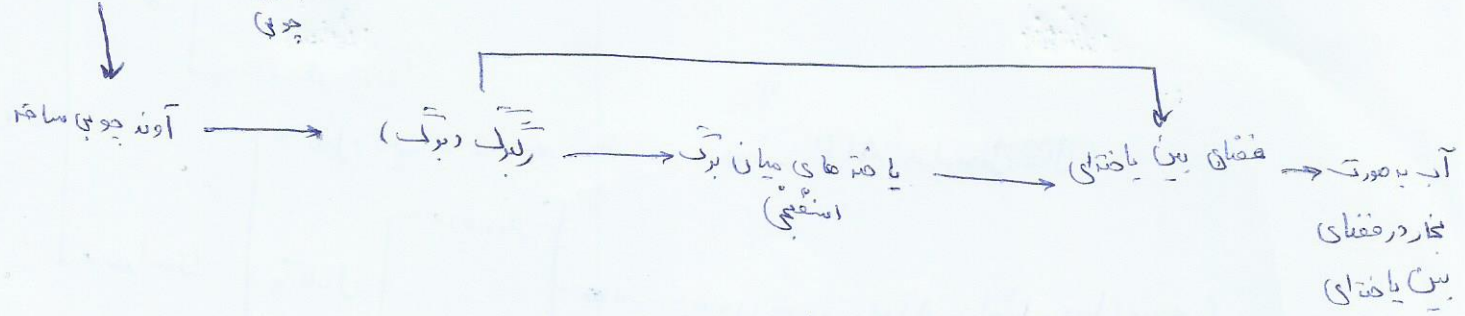 چوبی
آوند چوبی ساقه
رگبرگ (برگ)
یاخته های میان برگ
اسفنجی
فضای بین یاخته‌ای
آب به صورت
بخار در فضای
بین یاخته‌ای